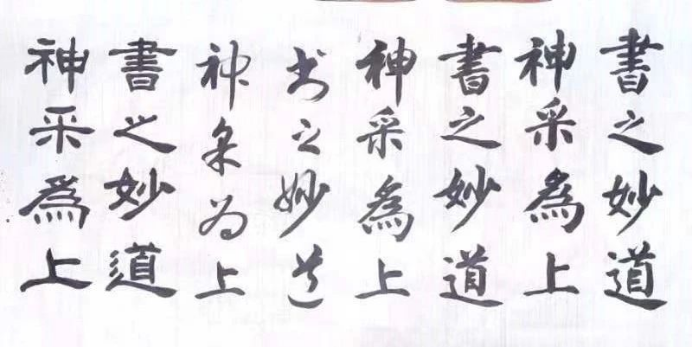 書之妙道
神采為上
書之妙道
神采為上
书之妙道
神采为上
書之妙道
神采爲上